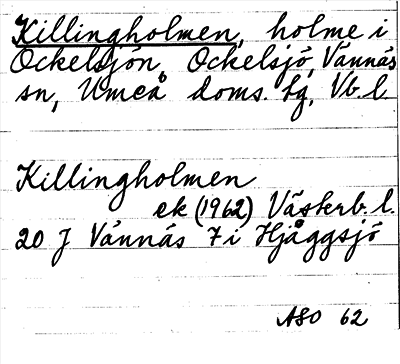 Killingholmen, holme i
Ockelsjön, Ockelsjö, Vännäs
sn, Umeå doms. tg, Vb. l
Killingholmen
ek (1962) Västerb. l.
20 J Vännäs 7 i Hjåggsjö
ASO 62